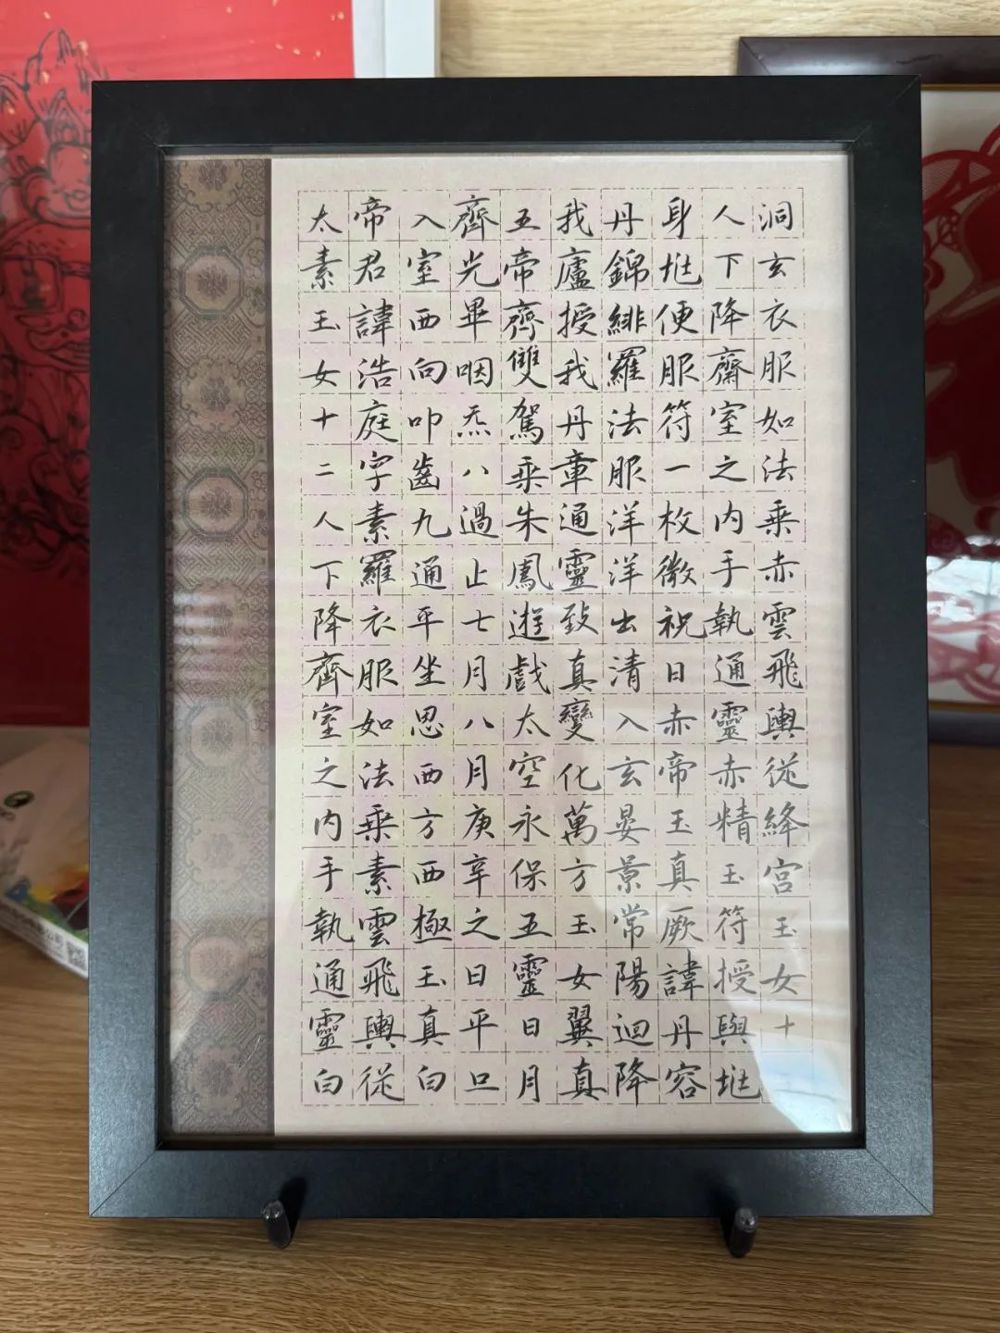 洞玄衣服如法乘赤雲飛輿從絳宮玉女十
人下降齋室之内手執通靈赤精玉符授與垗
身垗便服符一枚微祝曰赤帝玉真厥諱丹容
丹錦緋羅法服洋洋出清入玄晏景常陽迴降
我廬授我丹章通靈致真變化萬方玉女翼真
五帝齊雙駕乘朱鳳遊戲太空永保五靈日月
齊光畢咽炁八過止七月八月庚辛之日平旦
入室西向叩齒九通平坐思西方西極玉真白
帝君諱浩庭字素羅衣服如法乘素雲飛輿從
太素玉女十二人下降齊室之内手執通靈白